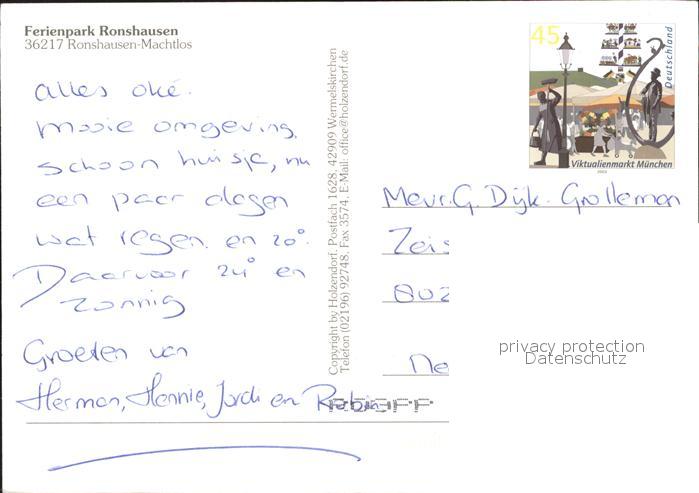 Ferienpark Ronshausen
36217 Ronshausen-Machtlos
alles oké.
mooie omgeving,
schoon huisje, nu
een paar dagen
wat regen en 20°
Daarvoor 24° en
zonnig
Groeten van
Herman, Hennie, Jordi en Robin
Copyright by Holzendorf, Postfach 1628, 42909 Wermelskirchen
Telefon (02196) 92748, Fax 3574, E-Mail: office@holzendorf.de
45
Deutschland
Viktualienmarkt München
2003
Mevr. G. Dijk. Grolleman
Zeis
802
Ne
privacy protection
Datenschutz